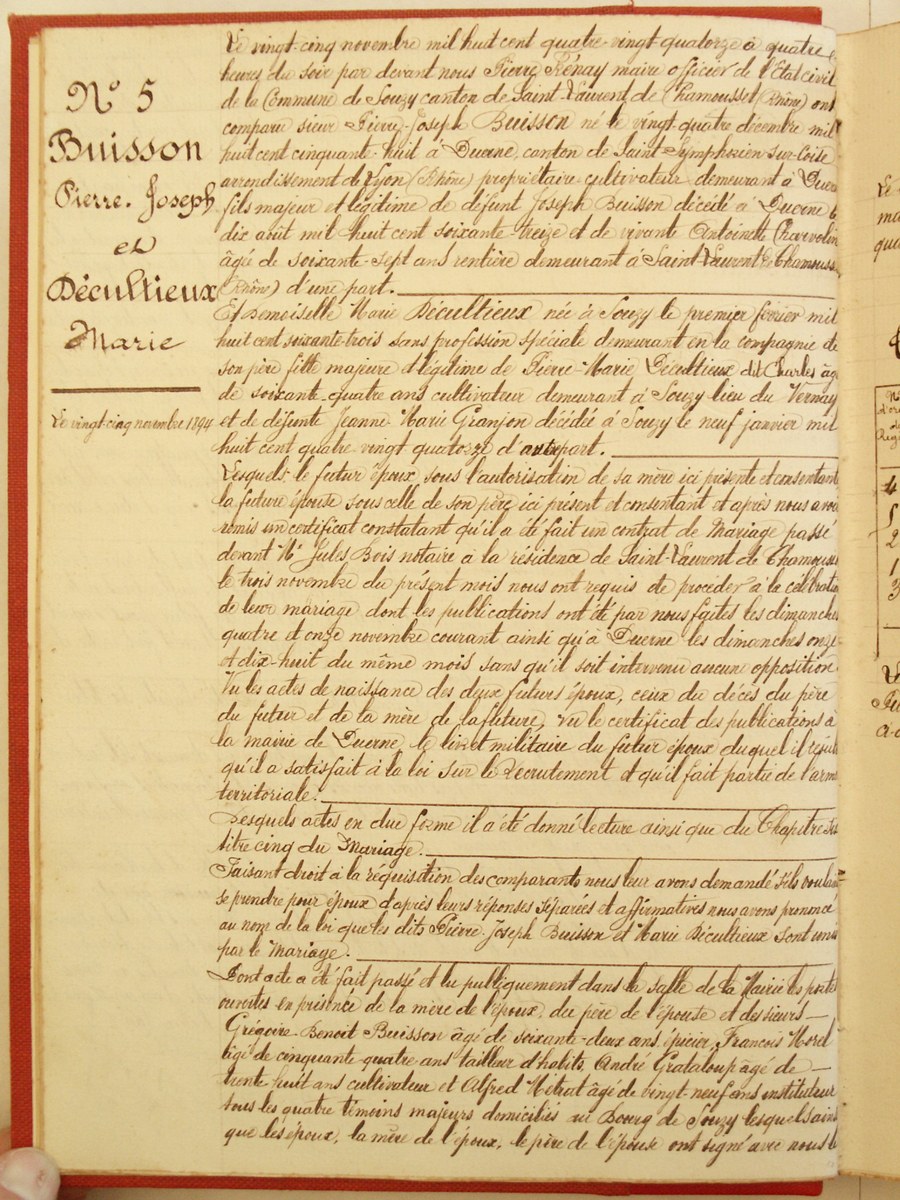 N° 5
Buisson
Pierre-Joseph
et
Décultieux
Marie
Le vingt-cinq novembre 1894
Le vingt-cinq novembre mil huit cent quatre-vingt-quatorze à quatre
heures du soir par devant nous Pierre Rénay maire officier de l'Etat civil
de la Commune de Souzy canton de Saint-Laurent de Chamousset (Rhône) ont
comparu sieur Pierre-Joseph Buisson né le vingt-quatre décembre mil
huit cent cinquante-huit à Duerne, canton de Saint-Symphorien-sur-Coise
arrondissement de Lyon (Rhône) propriétaire-cultivateur demeurant à Duer
fils majeur et légitime de défunt Joseph Buisson décédé à Duerne le
dix août mil huit cent soixante-treize et de vivante Antoinette Charvolin
âgé de soixante-sept ans rentière demeurant à Saint-Laurent de Chamouss
(Rhône) d'une part.
Et Demoiselle Marie Décultieux née à Souzy le premier février mil
huit cent soixante-trois sans profession spéciale demeurant en la compagnie de
son père fille majeure et légitime de Pierre-Marie Décultieux dit Charles âgé
de soixante-quatre ans cultivateur demeurant à Souzy lieu du Vernay
et de défunte Jeanne-Marie Granjon décédé à Souzy le neuf janvier mil
huit cent quatre vingt quatorze d'autre part.
Lesquels, le futur époux sous l'autorisation de sa mère ici présente et consentante
la future épouse sous celle de son père ici présent et consentant et après nous avoir
remis un certificat constatant qu'il a été fait un contrat de Mariage passé
devant Me Jules Bois notaire à la résidence de Saint-Laurent de Chamousse
le trois novembre du présent mois nous ont requis de procéder à la célébration
de leur mariage dont les publications ont été par nous faites les dimanches
quatre et onze novembre courant ainsi qu'à Duerne les dimanches onze
et dix-huit du même mois sans qu'il soit intervenu aucune opposition
Vu les actes de naissance des deux futurs époux, ceux du décès du père
du futur et de la mère de la future, vu le certificat des publications à
la mairie de Duerne, le livret militaire du futur époux duquel il résulte
qu'il a satisfait à la loi sur le recrutement et qu'il fait partie de l'arm
territoriale.
Desquels actes en due forme il a été donné lecture ainsi que du Chapitre six
titre cinq du Mariage.
Faisant droit à la réquisition des comparants nous leur avons demandé s'ils voulai
se prendre pour époux d'après leurs réponses séparées et affirmatives nous avons prononcé
au nom de la loi que les dits Pierre-Joseph Buisson et Marie Décultieux sont unis
par le Mariage.
Dont acte a été fait passé et lu publiquement dans la salle de la Mairie les portes
ouvertes en présence de la mère de l'époux, du père de l'épouse et des sieurs
Grégoire-Benoit Buisson âgé de soixante-deux ans, épicier, François Morel
âgé de cinquante-quatre-ans tailleur d'habits, André Grataloup âgé de
trente huit ans cultivateur et Alfred Mitrat âgé de vingt-neuf ans instituteur
tous les quatre témoins majeurs domiciliés au Bourg de Souzy lesquels ains
que les époux, la mère de l'époux, le père de l'épouse ont signé avec nous le